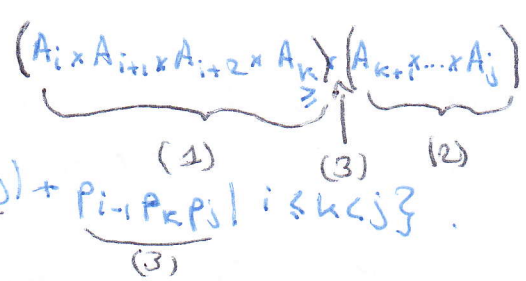 (A_i × A_{i+1} × A_{i+2} × A_k) × (A_{k+1} × ... × A_j)
(1) (3) (2)
j) + p_{i-1} p_k p_j | i ≤ k < j}.
(3)